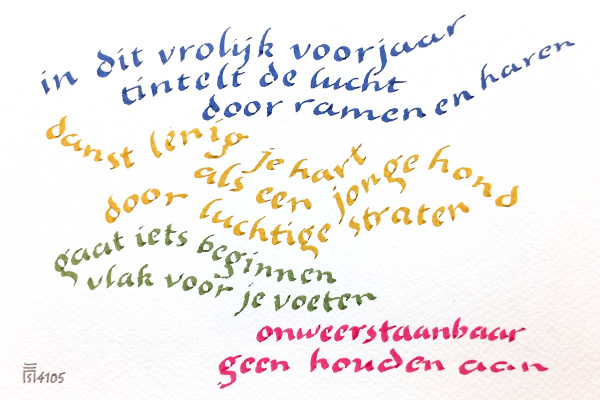 in dit vrolijk voorjaar
tintelt de lucht
door ramen en haren
danst lenig je hart
als een jonge hond
door luchtige straten
gaat iets beginnen
vlak voor je voeten
onweerstaanbaar
geen houden aan
4105